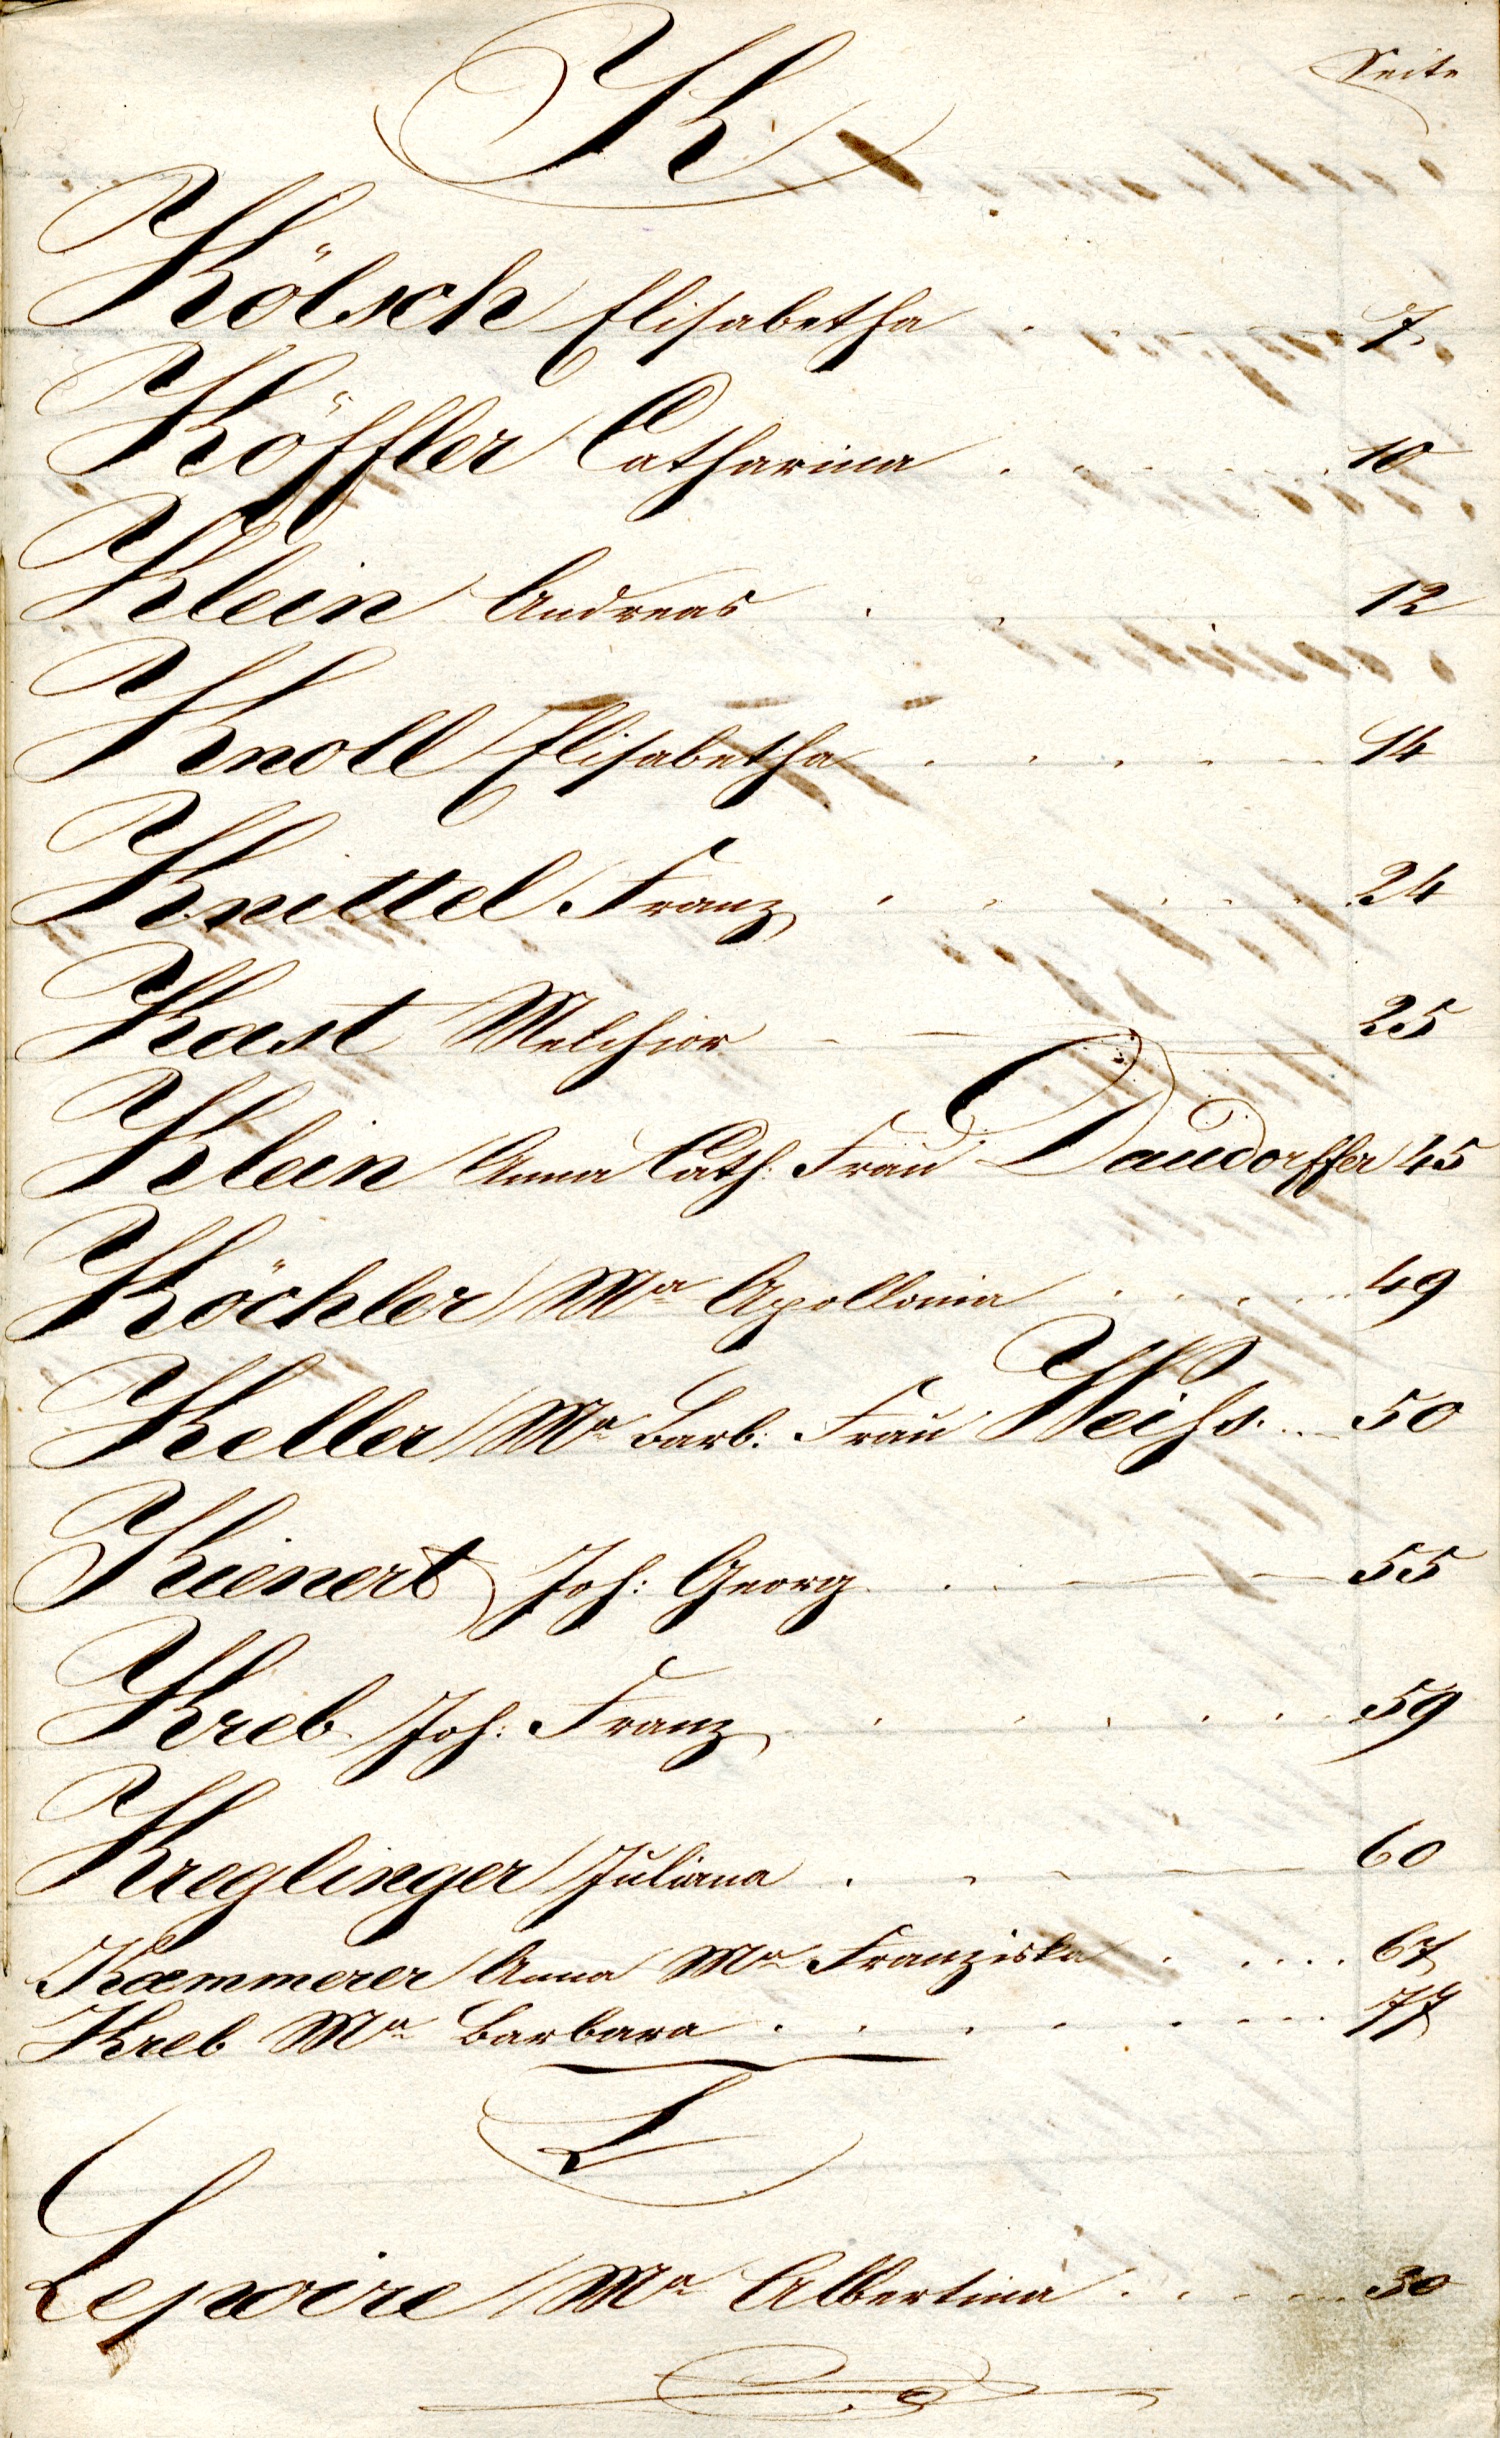 K
Seite
Kölsch Elisabetha 7
Köffler Catharina 10
Klein Andreas 12
Knoll Elisabetha 14
Knittel Franz 24
Kast Melchior 25
Klein Anna Cath: Frau Daudorffer 45
Köchler Mª Apollonia 49
Keller Mª Barb: Frau Weiss 50
Kienert Joh: Georg 55
Kreb Joh: Franz 59
Kreglinger Juliana 60
Kæmmerer Anna Mª Franziska 67
Kreb Mª Barbara 77
L
Lepoire Mª Albertina 30